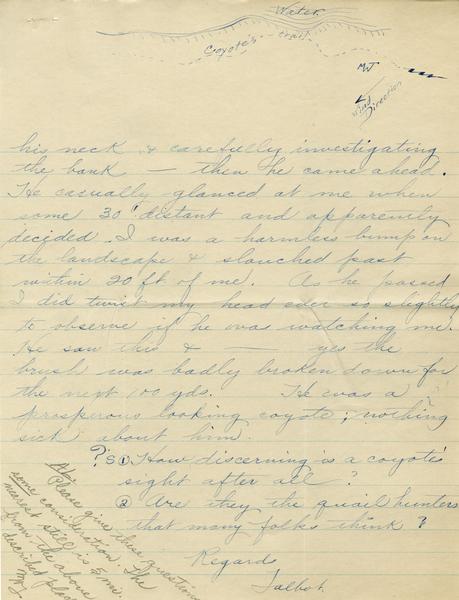 Water
Coyote's trail
MT
Wind
Direction
his neck & carefully investigating
the bank — then he came ahead.
He casually glanced at me when
some 30' distant and apparently
decided I was a harmless bump on
the landscape & slouched past
within 20 ft of me. As he passed
I did twist my head ever so slightly
to observe if he was watching me.
He saw this & — yes the
brush was badly broken down for
the next 100 yds. He was a
prosperous looking coyote; nothing
sick about him.
?'s ① How discerning is a coyote's
sight after all?
② Are they the quail hunters
that many folks think?
Regards
Talbot.
Please give these questions
some consideration. The
nearest still is 5 mi.
from the above
described place